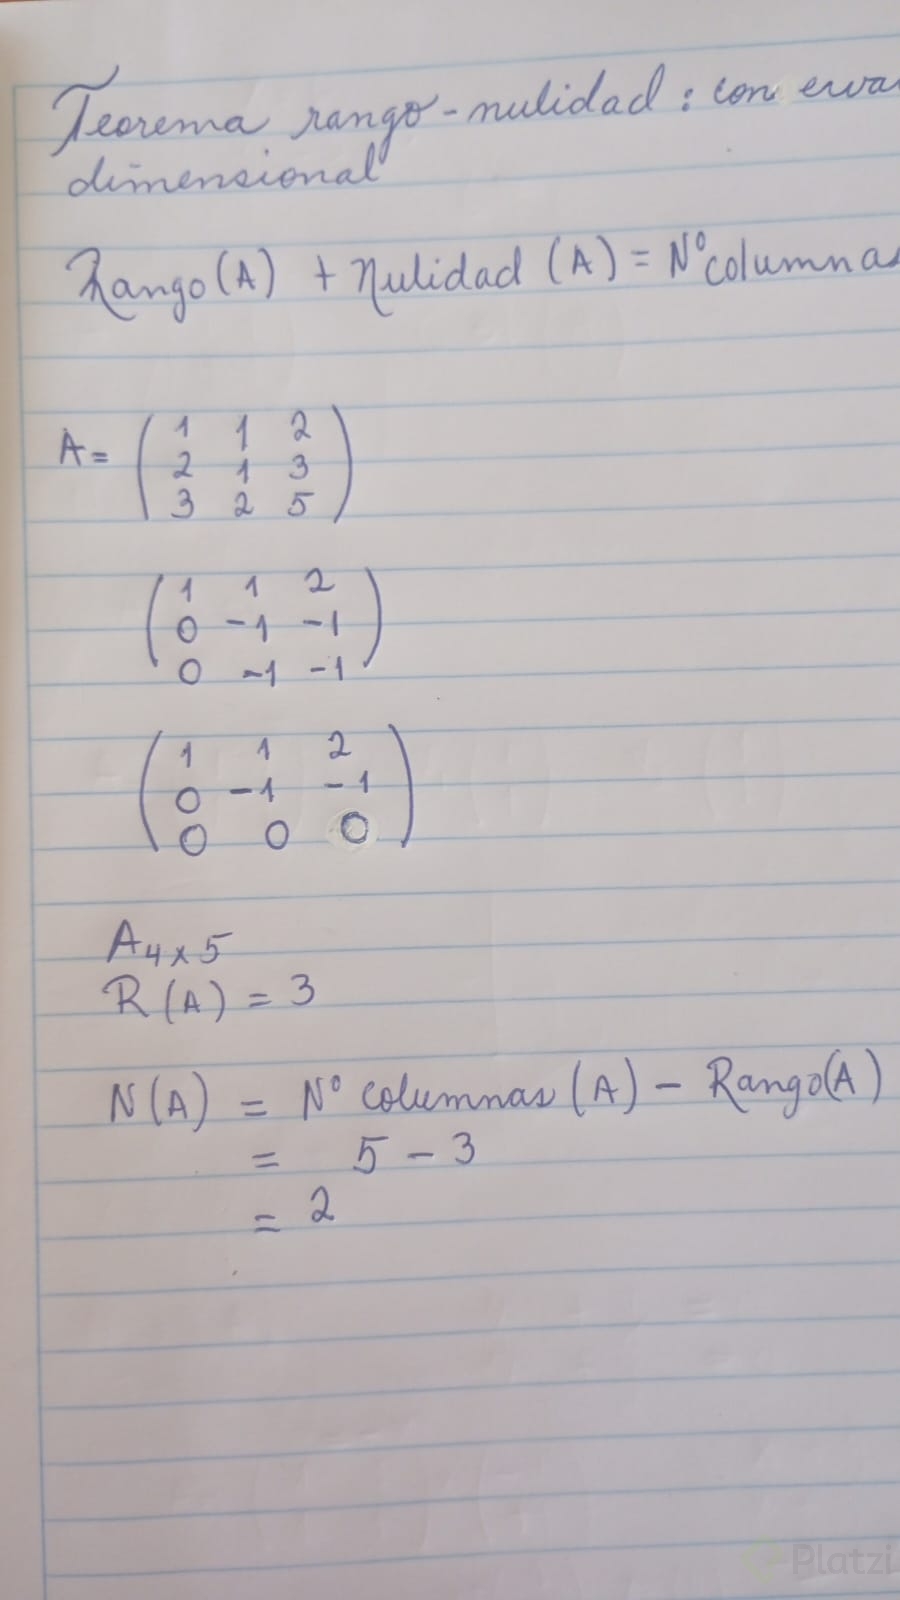 Teorema rango-nulidad: con erva
dimensional
Rango(A) + Nulidad (A) = N° columnas
A = ( 1 1 2
2 1 3
3 2 5 )
( 1 1 2
0 -1 -1
0 -1 -1 )
( 1 1 2
0 -1 -1
0 0 0 )
A4x5
R(A) = 3
N(A) = N° columnas (A) - Rango(A)
= 5 - 3
= 2
Platzi